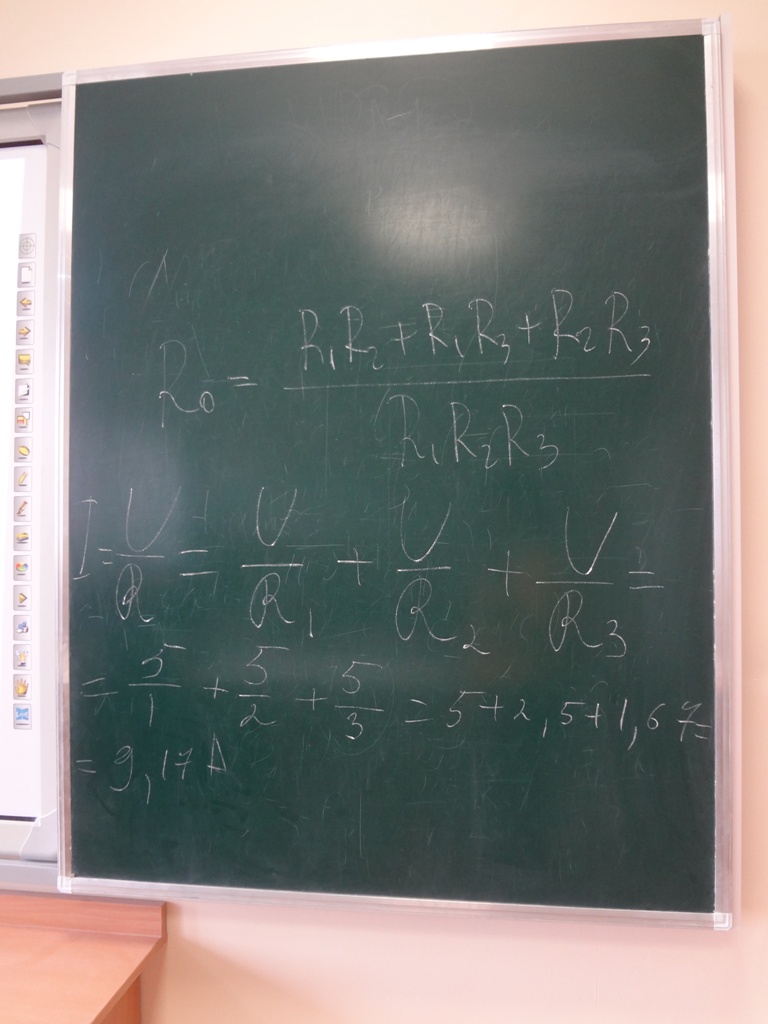 R₀ = (R₁R₂ + R₁R₃ + R₂R₃) / (R₁R₂R₃)
I = U/R = U/R₁ + U/R₂ + U/R₃ =
= 5/1 + 5/2 + 5/3 = 5 + 2,5 + 1,67 =
= 9,17 A